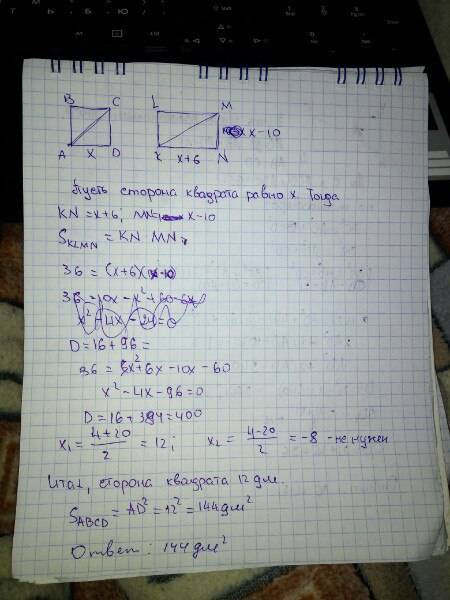 B C L M
x-10
A x D K x+6 N
Пусть сторона квадрата равно x. Тогда
KN = x+6; MN = x-10
S_KLMN = KN MN =
36 = (x+6)(x-10)
36 = 10x - x² + 60 - 6x
x² - 4x - 24 = 0
D = 16 + 96 =
36 = x² + 6x - 10x - 60
x² - 4x - 96 = 0
D = 16 + 384 = 400
x₁ = (4+20)/2 = 12; x₂ = (4-20)/2 = -8 - не нужен
Итак, сторона квадрата 12 дм.
S_ABCD = AD² = 12² = 144 дм²
Ответ: 144 дм²